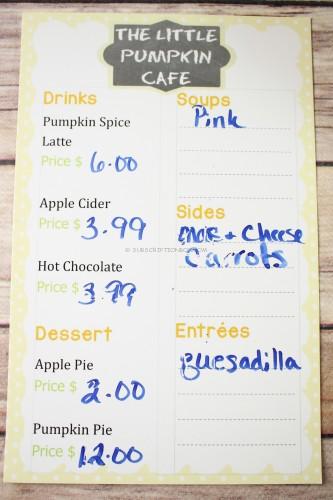 THE LITTLE
PUMPKIN
CAFE
Drinks
Pumpkin Spice
Latte
Price $ 6.00
Apple Cider
Price $ 3.99
Hot Chocolate
Price $ 3.99
Dessert
Apple Pie
Price $ 2.00
Pumpkin Pie
Price $ 12.00
Soups
Pink
Sides
mac + Cheese
Carrots
Entrées
quesadilla
© SUBSCRIPTIONBOX